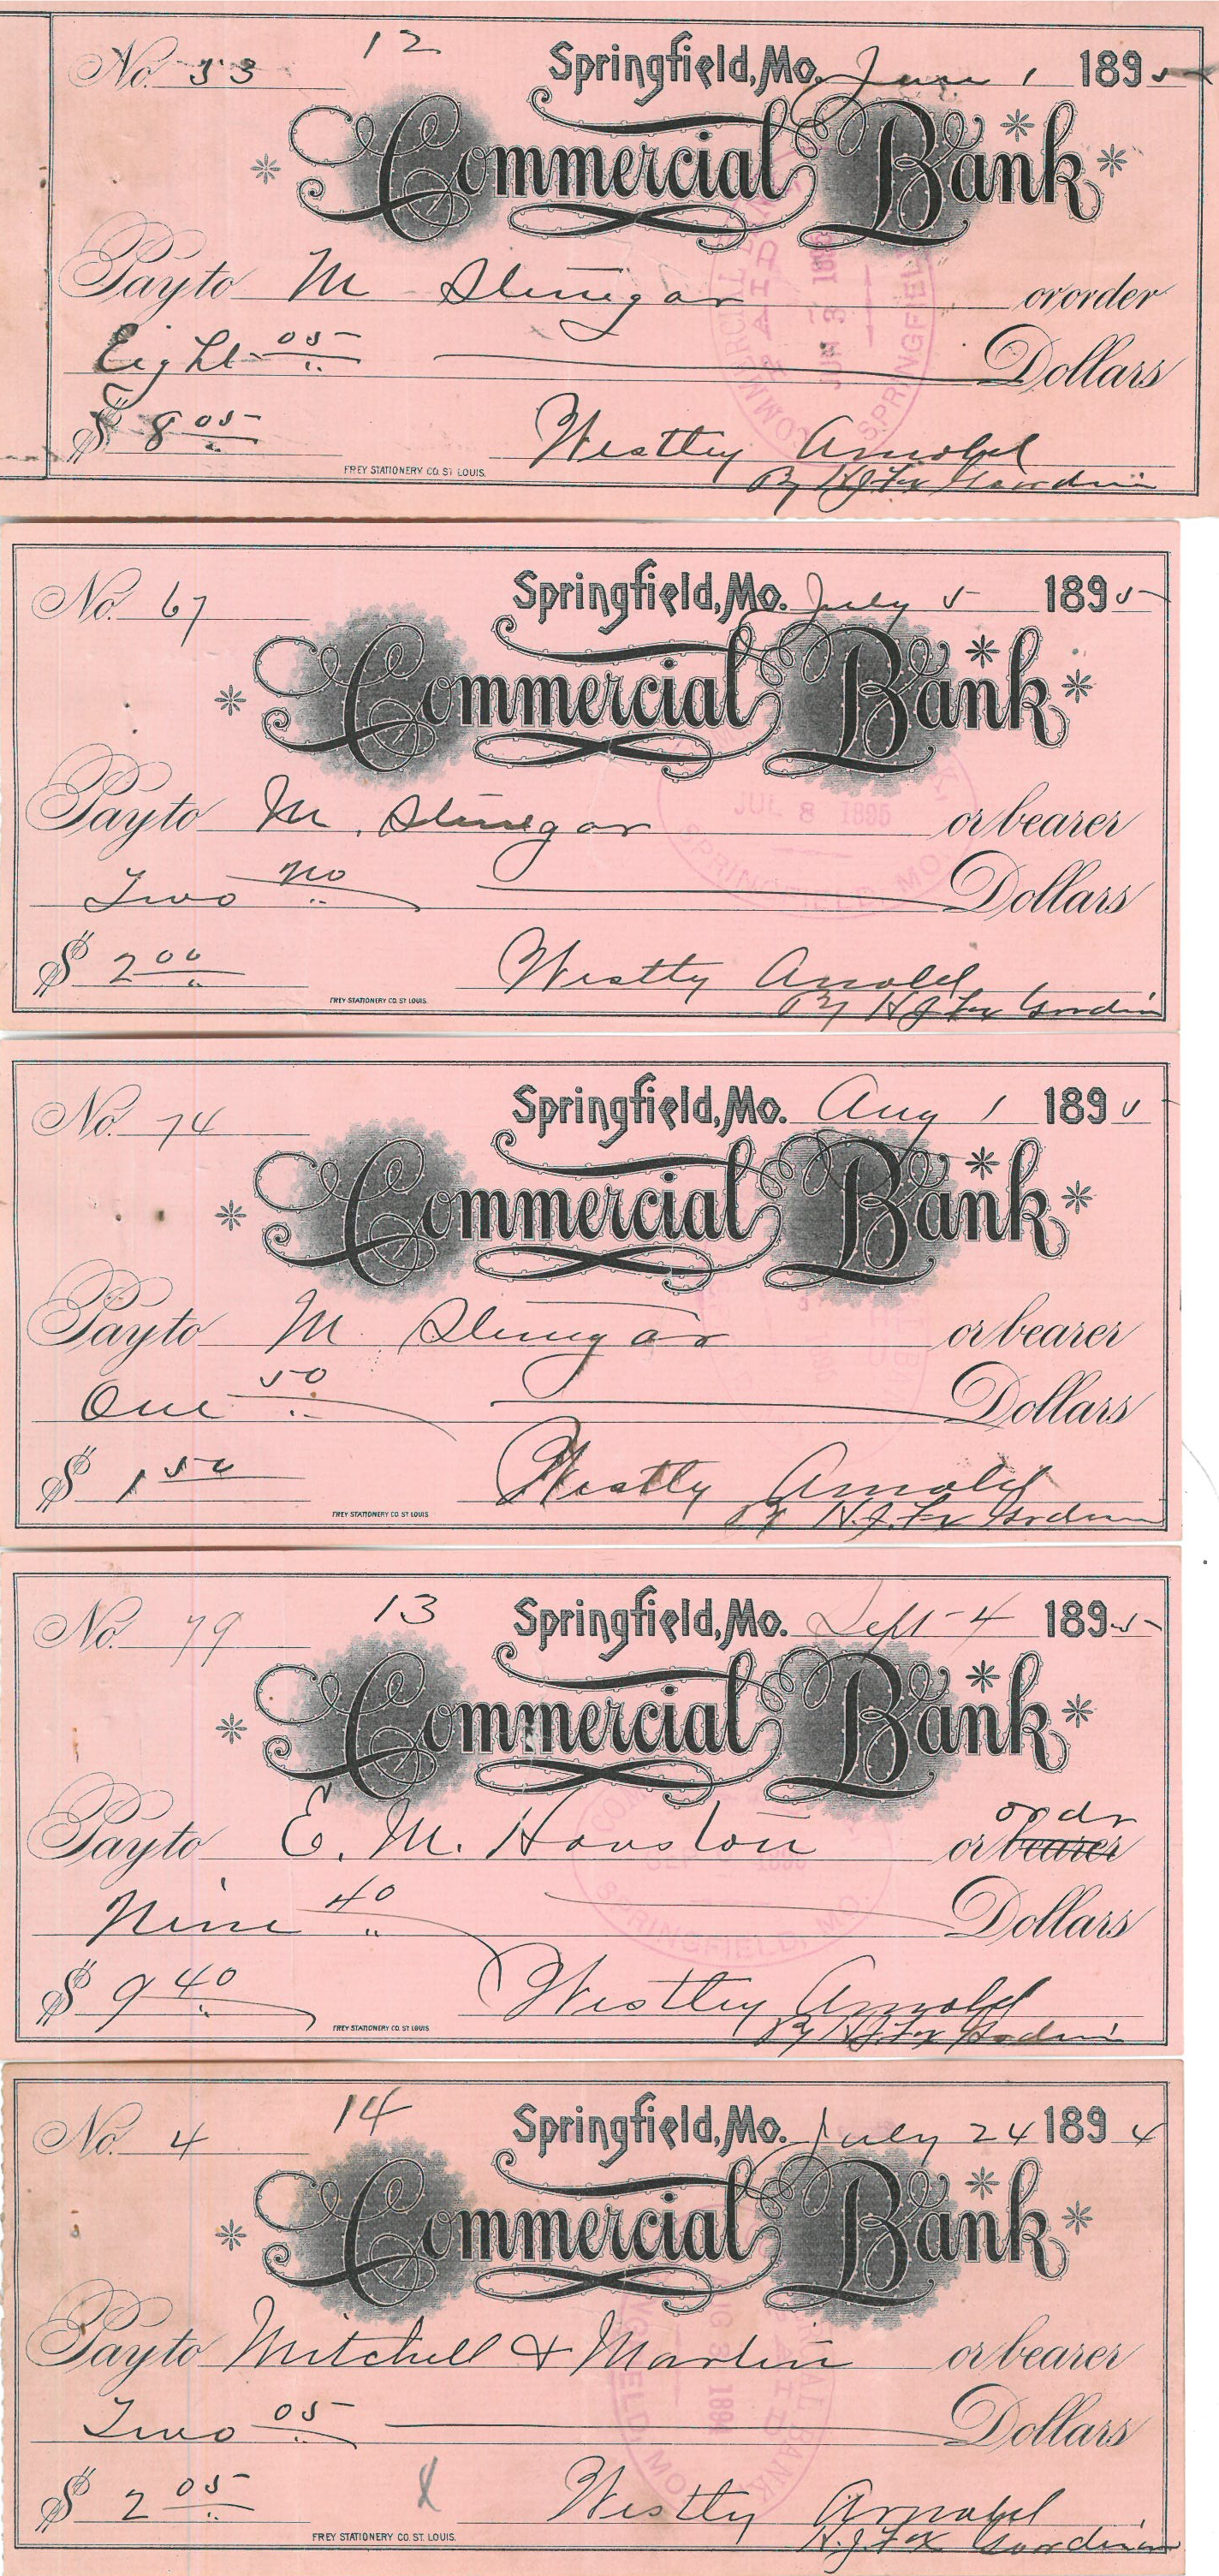 12
No. 53 Springfield, Mo. June 1 1895
Commercial Bank
Pay to M Stinegar or order
Eight 05 Dollars
$ 8 05 Westley Arnold
FREY STATIONERY CO. ST LOUIS. By H J Fox Guardian
COMMERCIAL BANK PAID JUN 3 1895 SPRINGFIELD
No. 67 Springfield, Mo. July 5 1895
Commercial Bank
Pay to M. Stinegar or bearer
Two no Dollars
$ 2 00 Westly Arnold
FREY STATIONERY CO. ST LOUIS. By H J Fox Guardian
JUL 8 1895 SPRINGFIELD MO.
No. 74 Springfield, Mo. Aug 1 1895
Commercial Bank
Pay to M. Stinegar or bearer
One 50 Dollars
$ 1 50 Westly Arnold
FREY STATIONERY CO ST LOUIS By H. J. Fox Guardian
13
No. 79 Springfield, Mo. Sept 4 1895
Commercial Bank
ordr
Pay to E. M. Houston or bearer
Nine 40 Dollars
$ 9 40 Westley Arnold
FREY STATIONERY CO. ST LOUIS By H. J. Fox Guardian
SPRINGFIELD, MO.
14
No. 4 Springfield, Mo. July 24 1894
Commercial Bank
Pay to Mitchell & Martin or bearer
Two 05 Dollars
$ 2 05 X Westly Arnold
FREY STATIONERY CO. ST. LOUIS. H. J. Fox Guardian
AUG 3 1894